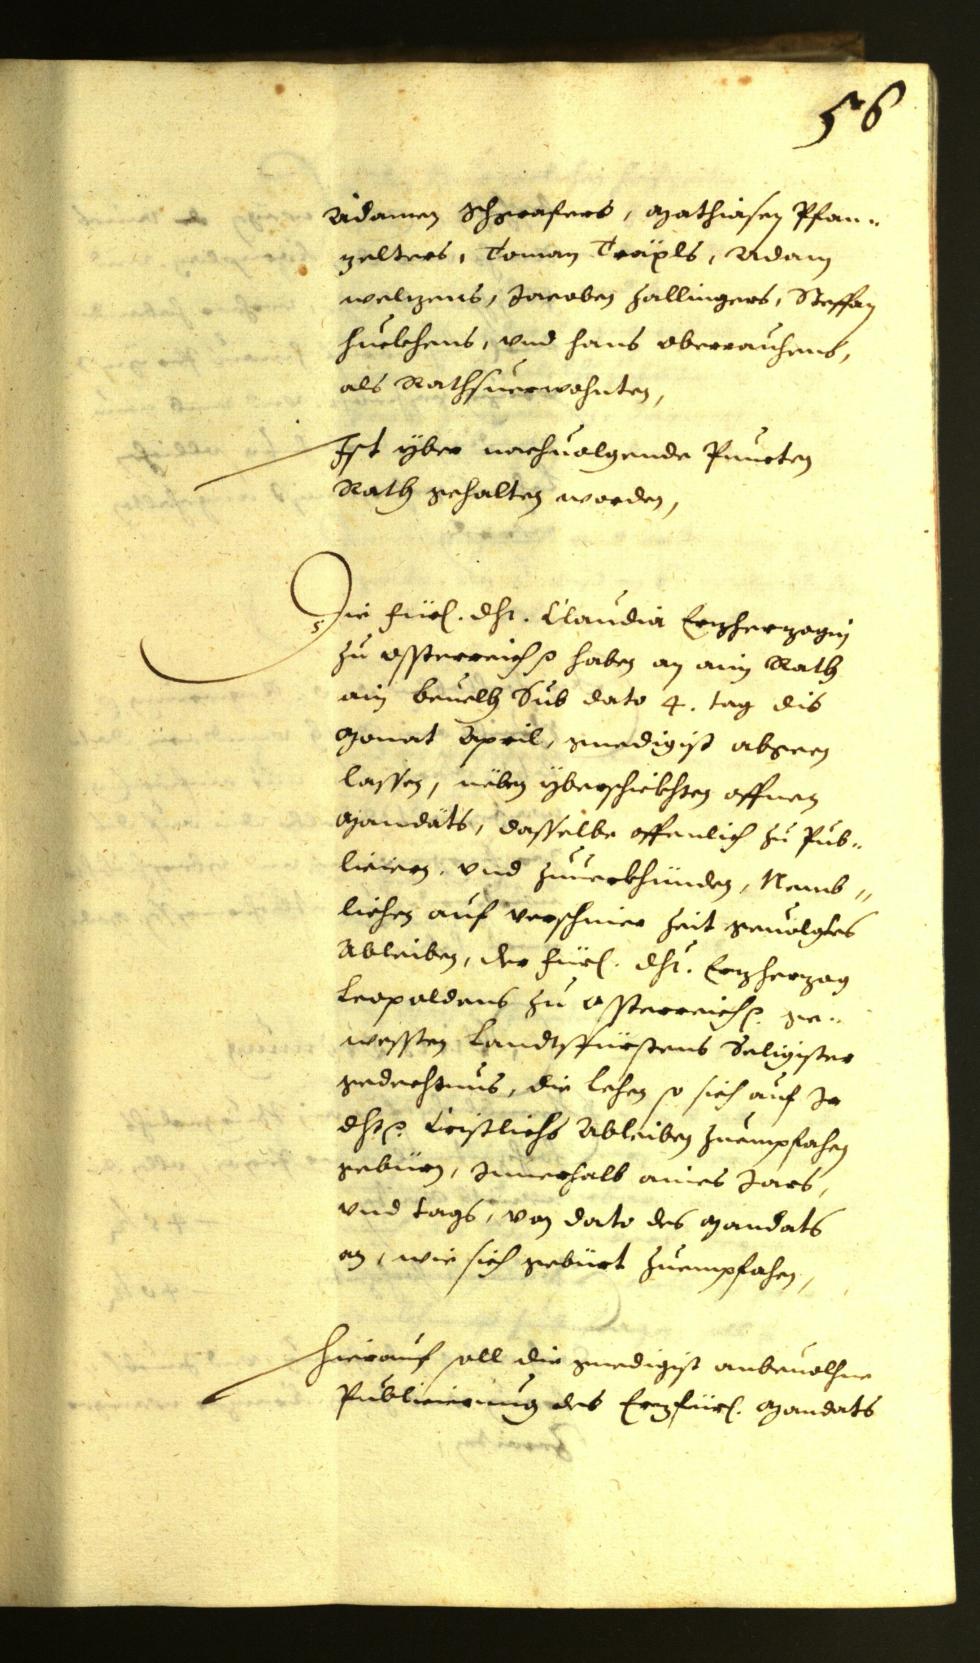 56
Adamen Schgrafers, Mathiasen Pfan„
zelters, Toman Träxls, Adam
welzens, Jacoben Zallingers, Steffan
huebehens, vnd Hans Oberrauhens,
als Rathsuerwohnten,
Ist yber nachuolgende Puncten
Rath gehalten worden,
Die Fürl. Dht. Claudia Erzherzogin
zu Ossterreich haben an ain Rath
ain beuelh Sub dato 4. tag dis
Monat April, gnedigist abgeen
lassen, neben yberschickhten offnen
Mandats, dasselbe offenlich zu Pub„
liciern, vnd zuuerkhünden, Nemb„
lichen auf verschiner Zeit geuolgtes
Ableiben, der Fürl. Dht. Erzherzog
Leopoldens zu Ossterreich ge„
wessten Landtsfürstens Seligister
gedechtnus, die Lehen so sich auf Ir
Dht Cristlichs Ableiben zuempfahen
gebürn, Innerhalb aines Jars,
vnd tags, von dato des Mandats
an, wie sich gebürt zuempfahen,
Hierauf soll die gnedigist anbeuolhne
Publicierung des Erzfürl. Mandats